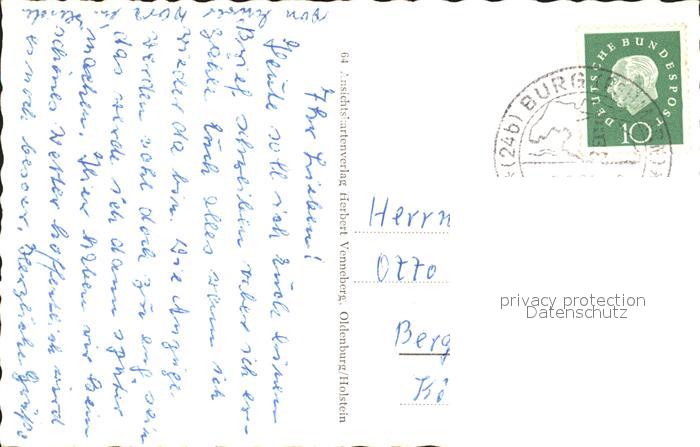 Ihr Lieben!
Heute soll ich Euch einen
Brief schreiben aber ich er-
zähle Euch alles wenn ich
wieder da bin. Die Anzüge
werden wohl doch zu eng sein
das werde ich dann später
machen. Hier haben wir kein
schönes Wetter hoffentlich wird
es noch besser. Herzliche Grüße
von
64 Ansichtskartenverlag Herbert Venneberg, Oldenburg/Holstein
DEUTSCHE BUNDESPOST
10
(24b) BURG
Herrn
Otto
Berg
Kö
privacy protection
Datenschutz